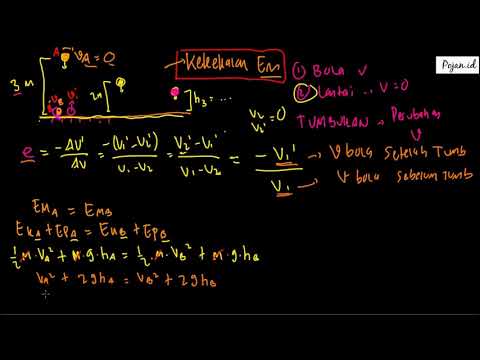 Pojan.id
A
V_A = 0
Kekekalan Em
① Bola V
② Lantai .. V = 0
3 m
2m
h_3 = ....
V_B
V_2 = 0
V_2' = 0
TUMBUKAN → Perubahan V
e = -ΔV'/ΔV = -(V_1' - V_2')/(V_1 - V_2) = (V_2' - V_1')/(V_1 - V_2) = -V_1'/V_1
→ V bola Setelah Tumb
→ V bola Sebelum tumb
EM_A = EM_B
Ek_A + EP_A = Ek_B + EP_B
1/2 m·V_A² + m·g·h_A = 1/2·m·V_B² + m·g·h_B
V_A² + 2gh_A = V_B² + 2gh_B